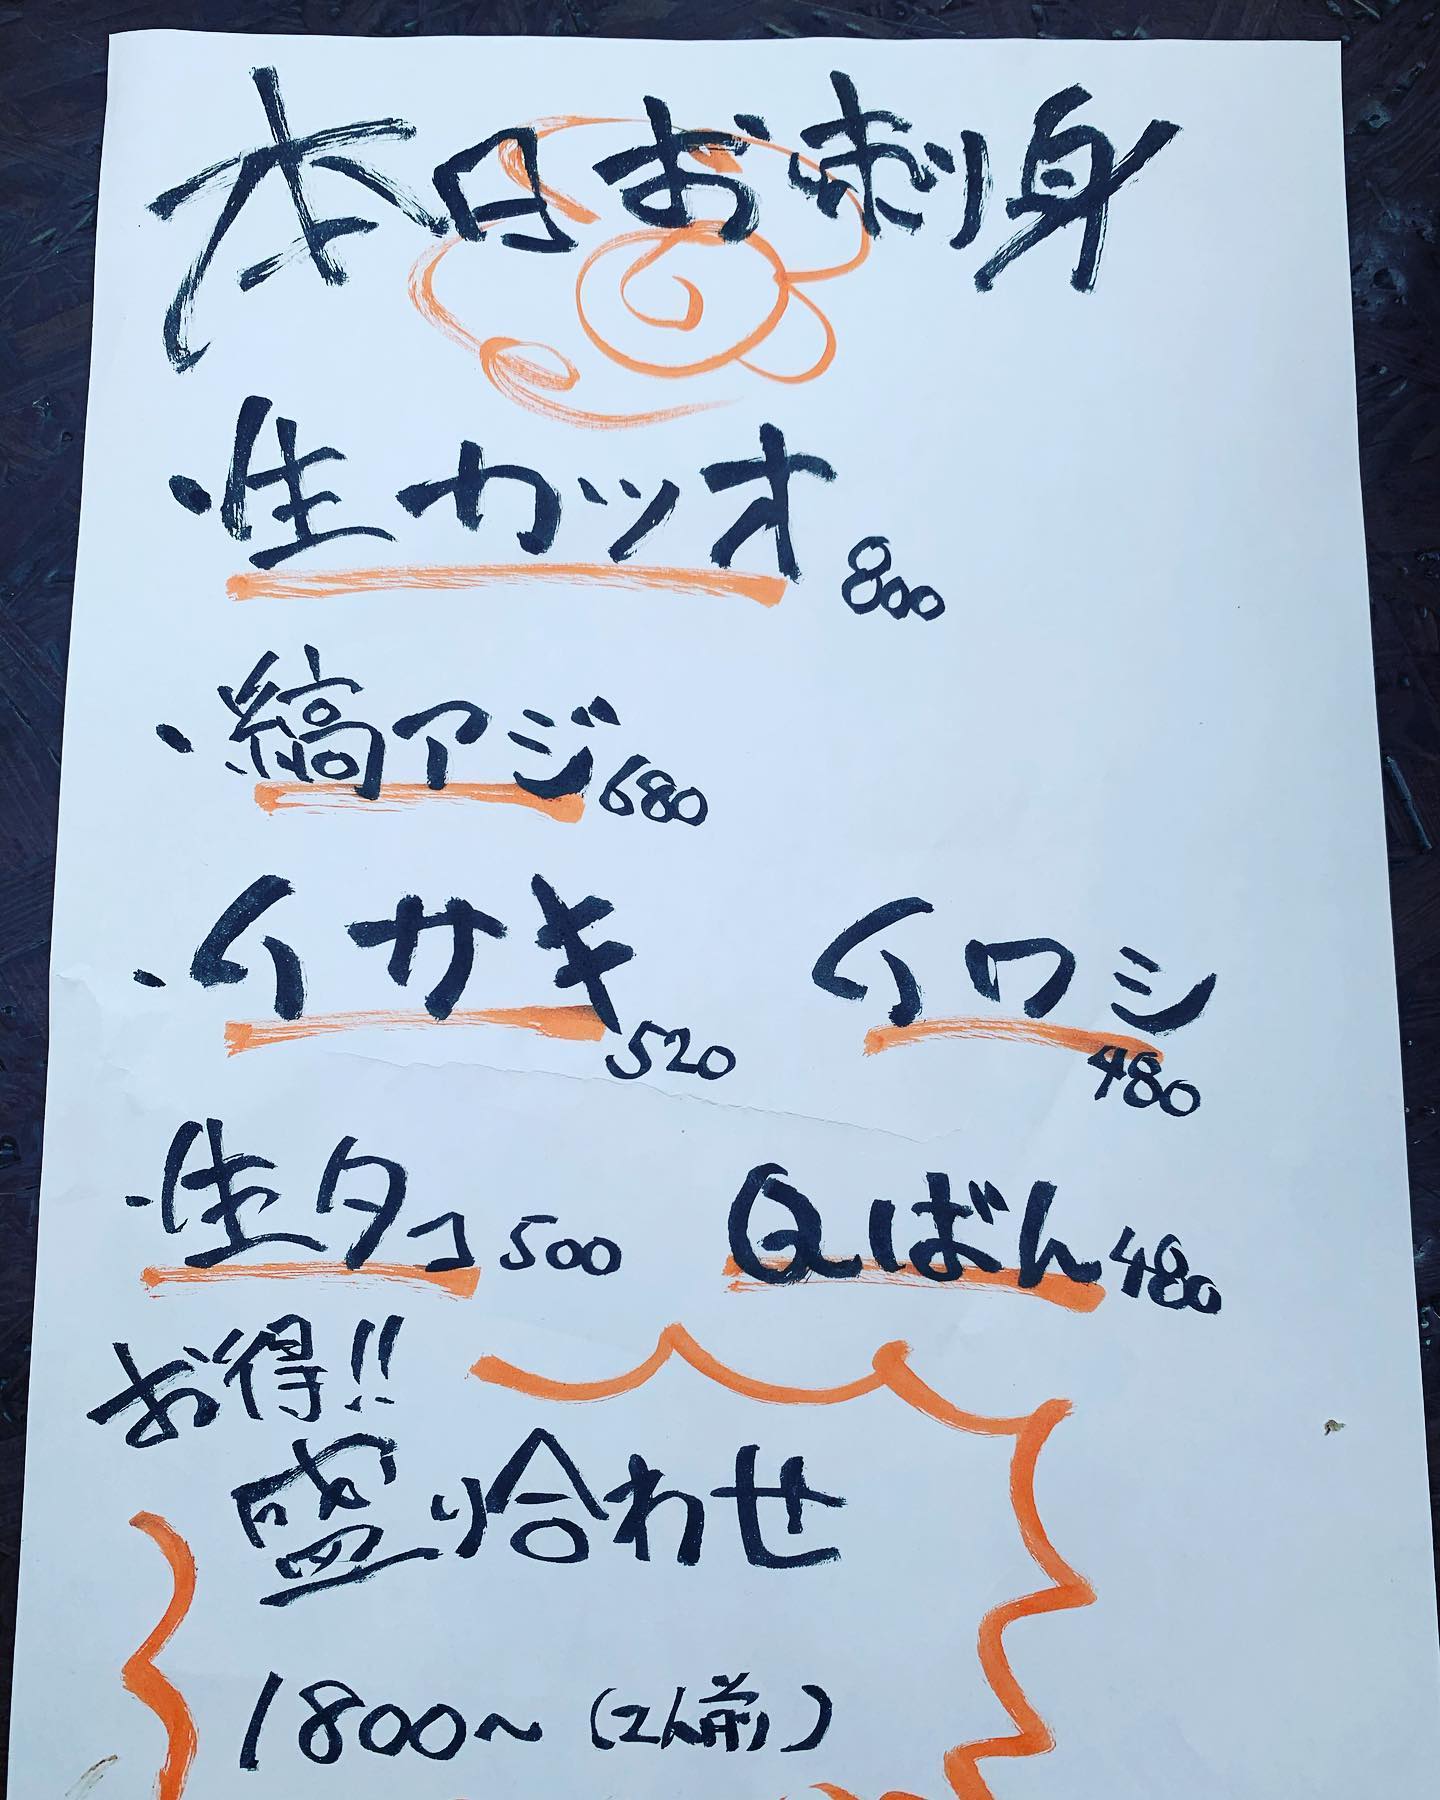 本日お刺身
・生カツオ 800
・縞アジ 680
・イサキ 520 イワシ 480
・生タコ 500 Qばん 480
お得!!
盛り合わせ
1800〜(2人前)